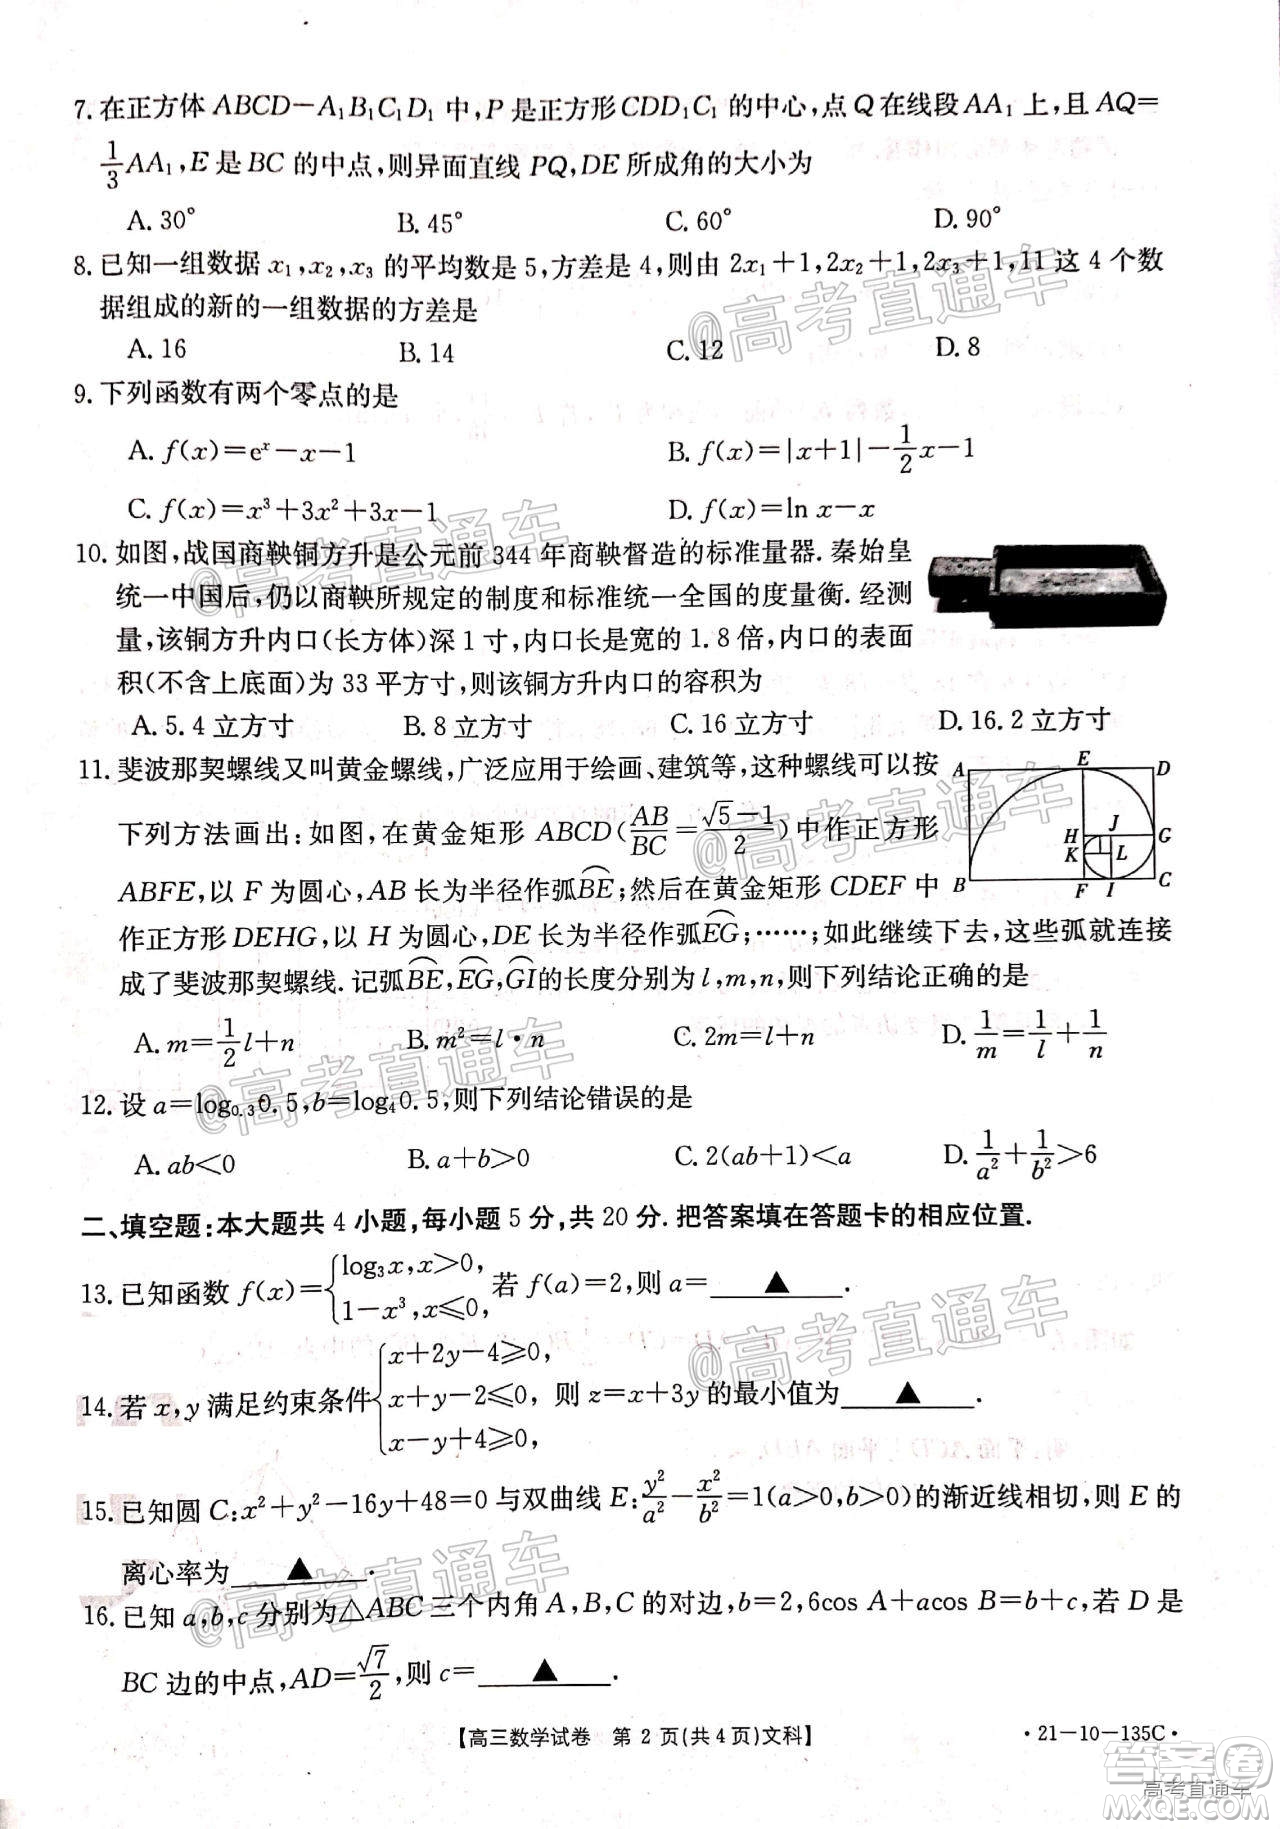 7. 在正方体 ABCD－A₁B₁C₁D₁ 中,P 是正方形 CDD₁C₁ 的中心,点 Q 在线段 AA₁ 上,且 AQ＝
1/3 AA₁,E 是 BC 的中点,则异面直线 PQ,DE 所成角的大小为
A. 30° B. 45° C. 60° D. 90°
8. 已知一组数据 x₁,x₂,x₃ 的平均数是 5,方差是 4,则由 2x₁＋1,2x₂＋1,2x₃＋1,11 这 4 个数
据组成的新的一组数据的方差是
A. 16 B. 14 C. 12 D. 8
9. 下列函数有两个零点的是
A. f(x)＝eˣ－x－1 B. f(x)＝|x＋1|－1/2 x－1
C. f(x)＝x³＋3x²＋3x－1 D. f(x)＝ln x－x
10. 如图,战国商鞅铜方升是公元前 344 年商鞅督造的标准量器. 秦始皇
统一中国后,仍以商鞅所规定的制度和标准统一全国的度量衡. 经测
量,该铜方升内口(长方体)深 1 寸,内口长是宽的 1.8 倍,内口的表面
积(不含上底面)为 33 平方寸,则该铜方升内口的容积为
A. 5.4 立方寸 B. 8 立方寸 C. 16 立方寸 D. 16.2 立方寸
11. 斐波那契螺线又叫黄金螺线,广泛应用于绘画、建筑等,这种螺线可以按
下列方法画出:如图,在黄金矩形 ABCD(AB/BC＝(√5－1)/2)中作正方形
ABFE,以 F 为圆心,AB 长为半径作弧BE;然后在黄金矩形 CDEF 中
作正方形 DEHG,以 H 为圆心,DE 长为半径作弧EG;……;如此继续下去,这些弧就连接
成了斐波那契螺线. 记弧BE,EG,GI的长度分别为 l,m,n,则下列结论正确的是
A E D
H J G
K L
B F I C
A. m＝1/2 l＋n B. m²＝l·n C. 2m＝l＋n D. 1/m＝1/l＋1/n
12. 设 a＝log₀.₃0.5,b＝log₄0.5,则下列结论错误的是
A. ab＜0 B. a＋b＞0 C. 2(ab＋1)＜a D. 1/a²＋1/b²＞6
二、填空题:本大题共 4 小题,每小题 5 分,共 20 分. 把答案填在答题卡的相应位置.
13. 已知函数 f(x)＝{log₃x,x＞0, 1－x³,x≤0, 若 f(a)＝2,则 a＝ ▲ .
14. 若 x,y 满足约束条件{x＋2y－4≥0, x＋y－2≤0, x－y＋4≥0, 则 z＝x＋3y 的最小值为 ▲ .
15. 已知圆 C:x²＋y²－16y＋48＝0 与双曲线 E:y²/a²－x²/b²＝1(a＞0,b＞0)的渐近线相切,则 E 的
离心率为 ▲ .
16. 已知 a,b,c 分别为△ABC 三个内角 A,B,C 的对边,b＝2,6cos A＋acos B＝b＋c,若 D 是
BC 边的中点,AD＝√7/2,则 c＝ ▲ .
【高三数学试卷 第 2 页(共 4 页)文科】
·21－10－135C·
@高考直通车
@高考直通车
@高考直通车
@高考直通车
@高考直通车
@高考直通车
@高考直通车
答案圈
高考直通车
MXQE.COM